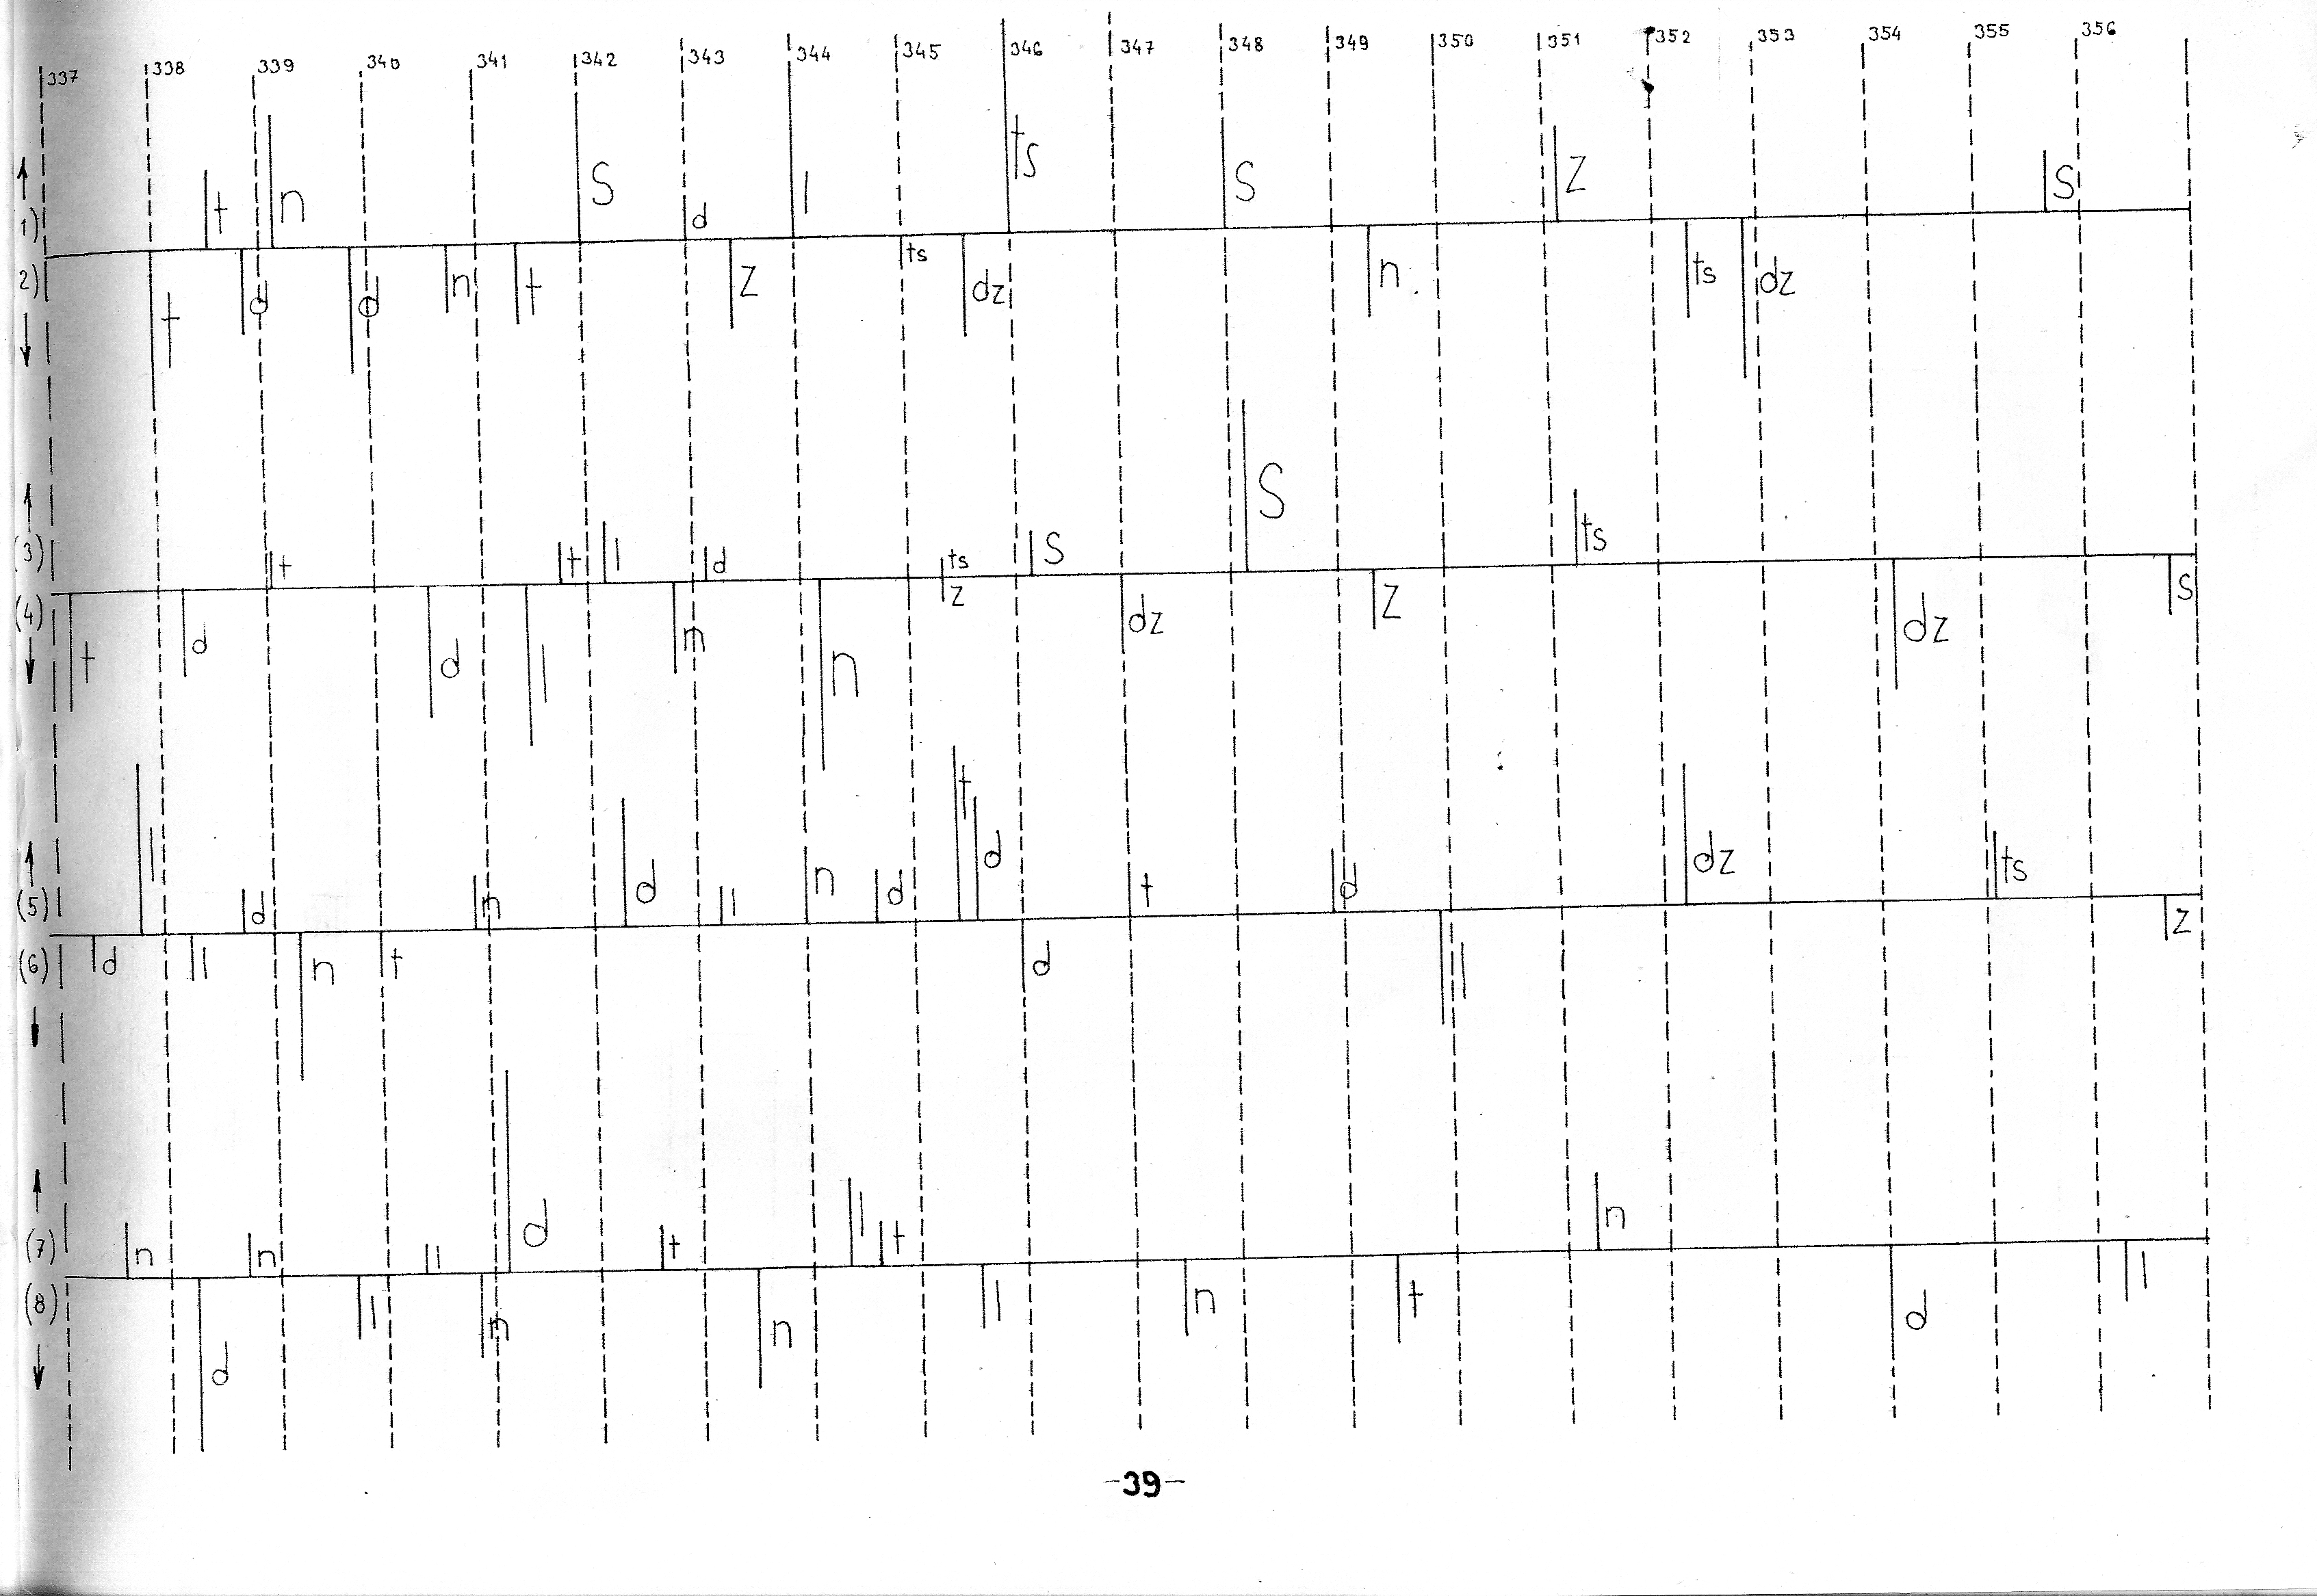 337 338 339 340 341 342 343 344 345 346 347 348 349 350 351 352 353 354 355 356
1) t n S d l ts S Z S
2) t d d n t Z ts dz n ts dz
(3) t t l d ts S S ts
(4) t d d l n n Z dz Z dz S
(5) l d n d l n d t d t d dz ts
(6) d l n t d l Z
(7) n n l d t l t n
(8) d l n n l n t d l
-39-